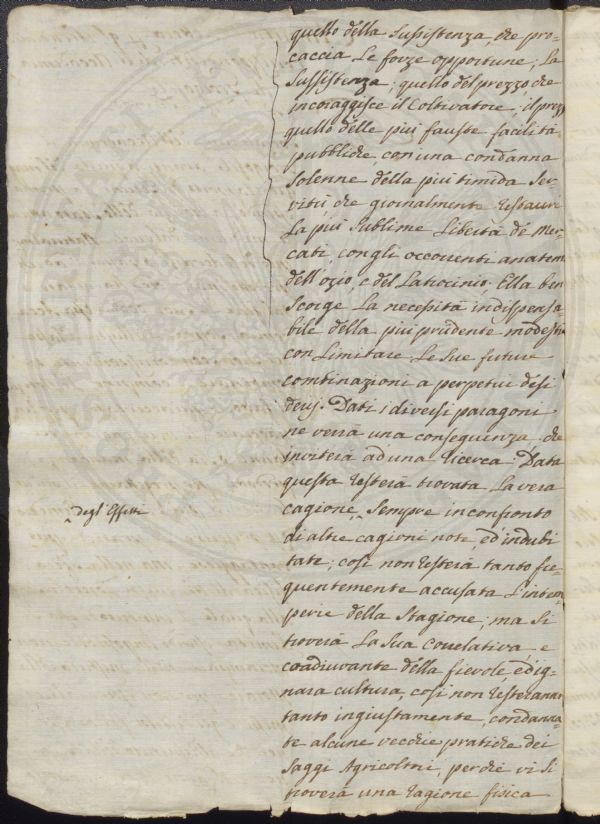 quello della Sussistenza, che pro-
caccia le forze opportune; la
Sussistenza; quello del prezzo che
incoraggisce il Coltivatore; il prezzo
quello delle più fauste facilità
pubbliche, con una condanna
solenne della più timida Ser-
vitù che giornalmente restauri
la più sublime libertà de Mer-
cati, con gli occorrenti anatem
dell'ozio, e del Latrocinio. Ella ben
Scorge la necessità indispensa-
bile della più prudente modestia
con limitare le sue future
combinazioni a perpetui desi
derj. Dati i diversi paragoni
ne verrà una conseguenza, che
inviterà ad una ricerca: Data
questa resterà trovata la vera
cagione
degl'Effetti
Sempre in confronto
di altre cagioni note, ed indubi
tate; così non resterà tanto fre-
quentemente accusata l'intem
perie della Stagione; ma si
troverà la sua correlativa, e
coadiuvante della fievole, ed ig-
nara cultura, così non resteranno
tanto ingiustamente, condanna-
te alcune vecchie pratiche dei
Saggi Agricoltori, perchè vi si
troverà una ragione fisica